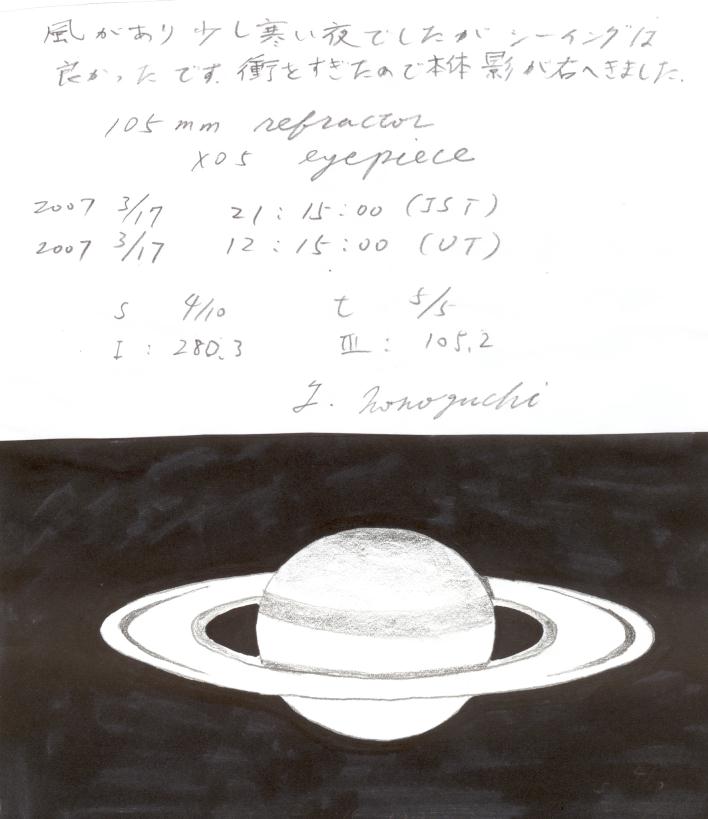 風があり少し寒い夜でしたがシーイングは
良かったです。衝をすぎたので本体影が右へきました。
105 mm refractor
XO5 eyepiece
2007 3/17 21:15:00 (JST)
2007 3/17 12:15:00 (UT)
S 4/10 t 5/5
I : 280.3 III : 105.2
T. Nonoguchi